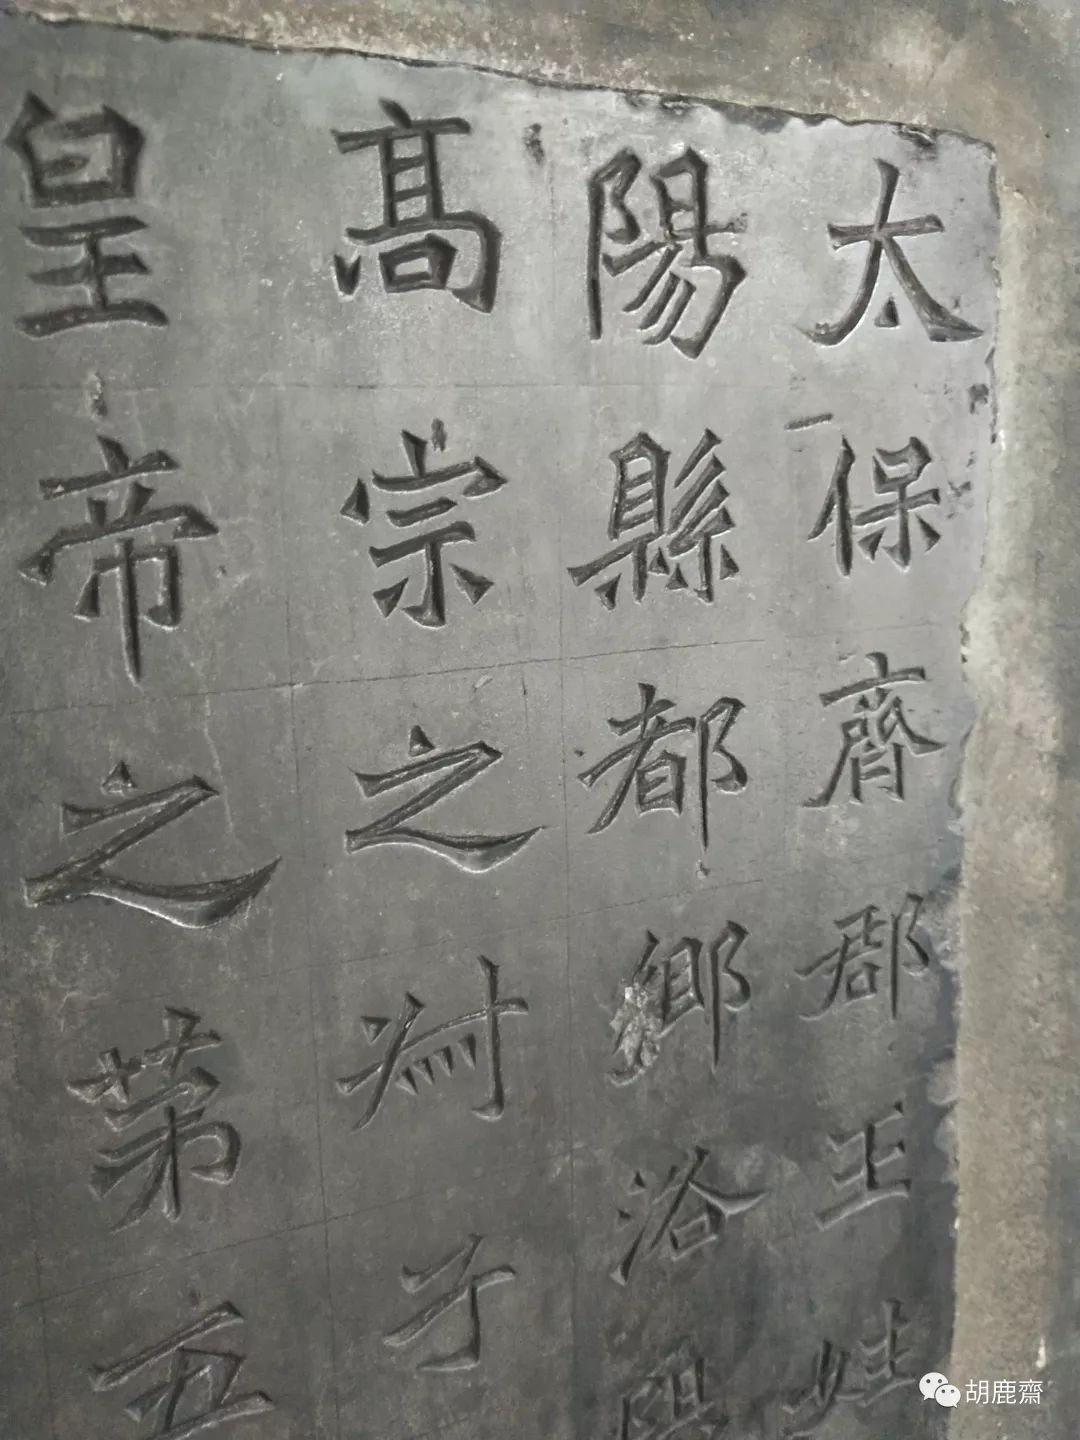 太保齊郡王姓
陽縣都鄉洛陽
高宗之孫子
皇帝之第五
胡鹿齋